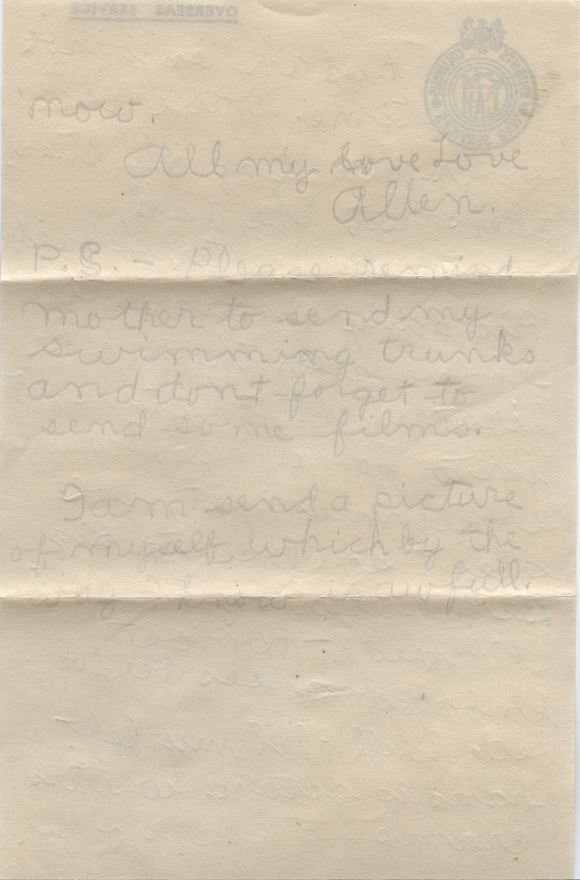 OVERSEAS SERVICE
now.
All my love Love
Allen.
P.S. - Please remind
mother to send my
swimming trunks
and dont forget to
send some films.
I am send a picture
of myself which by the
way I know is awfull.